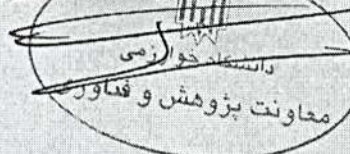 دانشگاه خوارزمی
معاونت پژوهش و فناوری